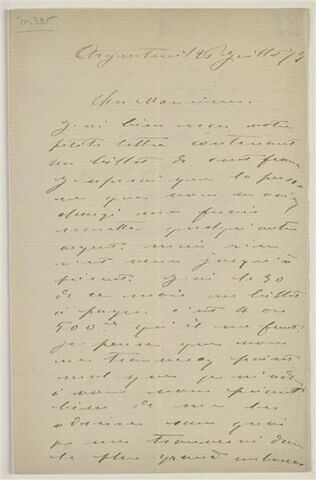 Argenteuil 26 Juillet 75
Cher Monsieur.
J'ai bien reçu votre
petite lettre contenant
un billet de cent francs
J'esperai que la person
ne que vous m'aviez
me ferais
quelqu'autre
argent. mais rien
n'est venu jusqu'à
présent. J'ai le 30
de ce mois un billet
à payer. c'est 4 ou
500 f qu'il me faut.
je pense que vous
ne trouverez point
mal que je m'adresse
à vous
bien de me les
adresser sans quoi
je me trouverai dans
le plus grand embarras